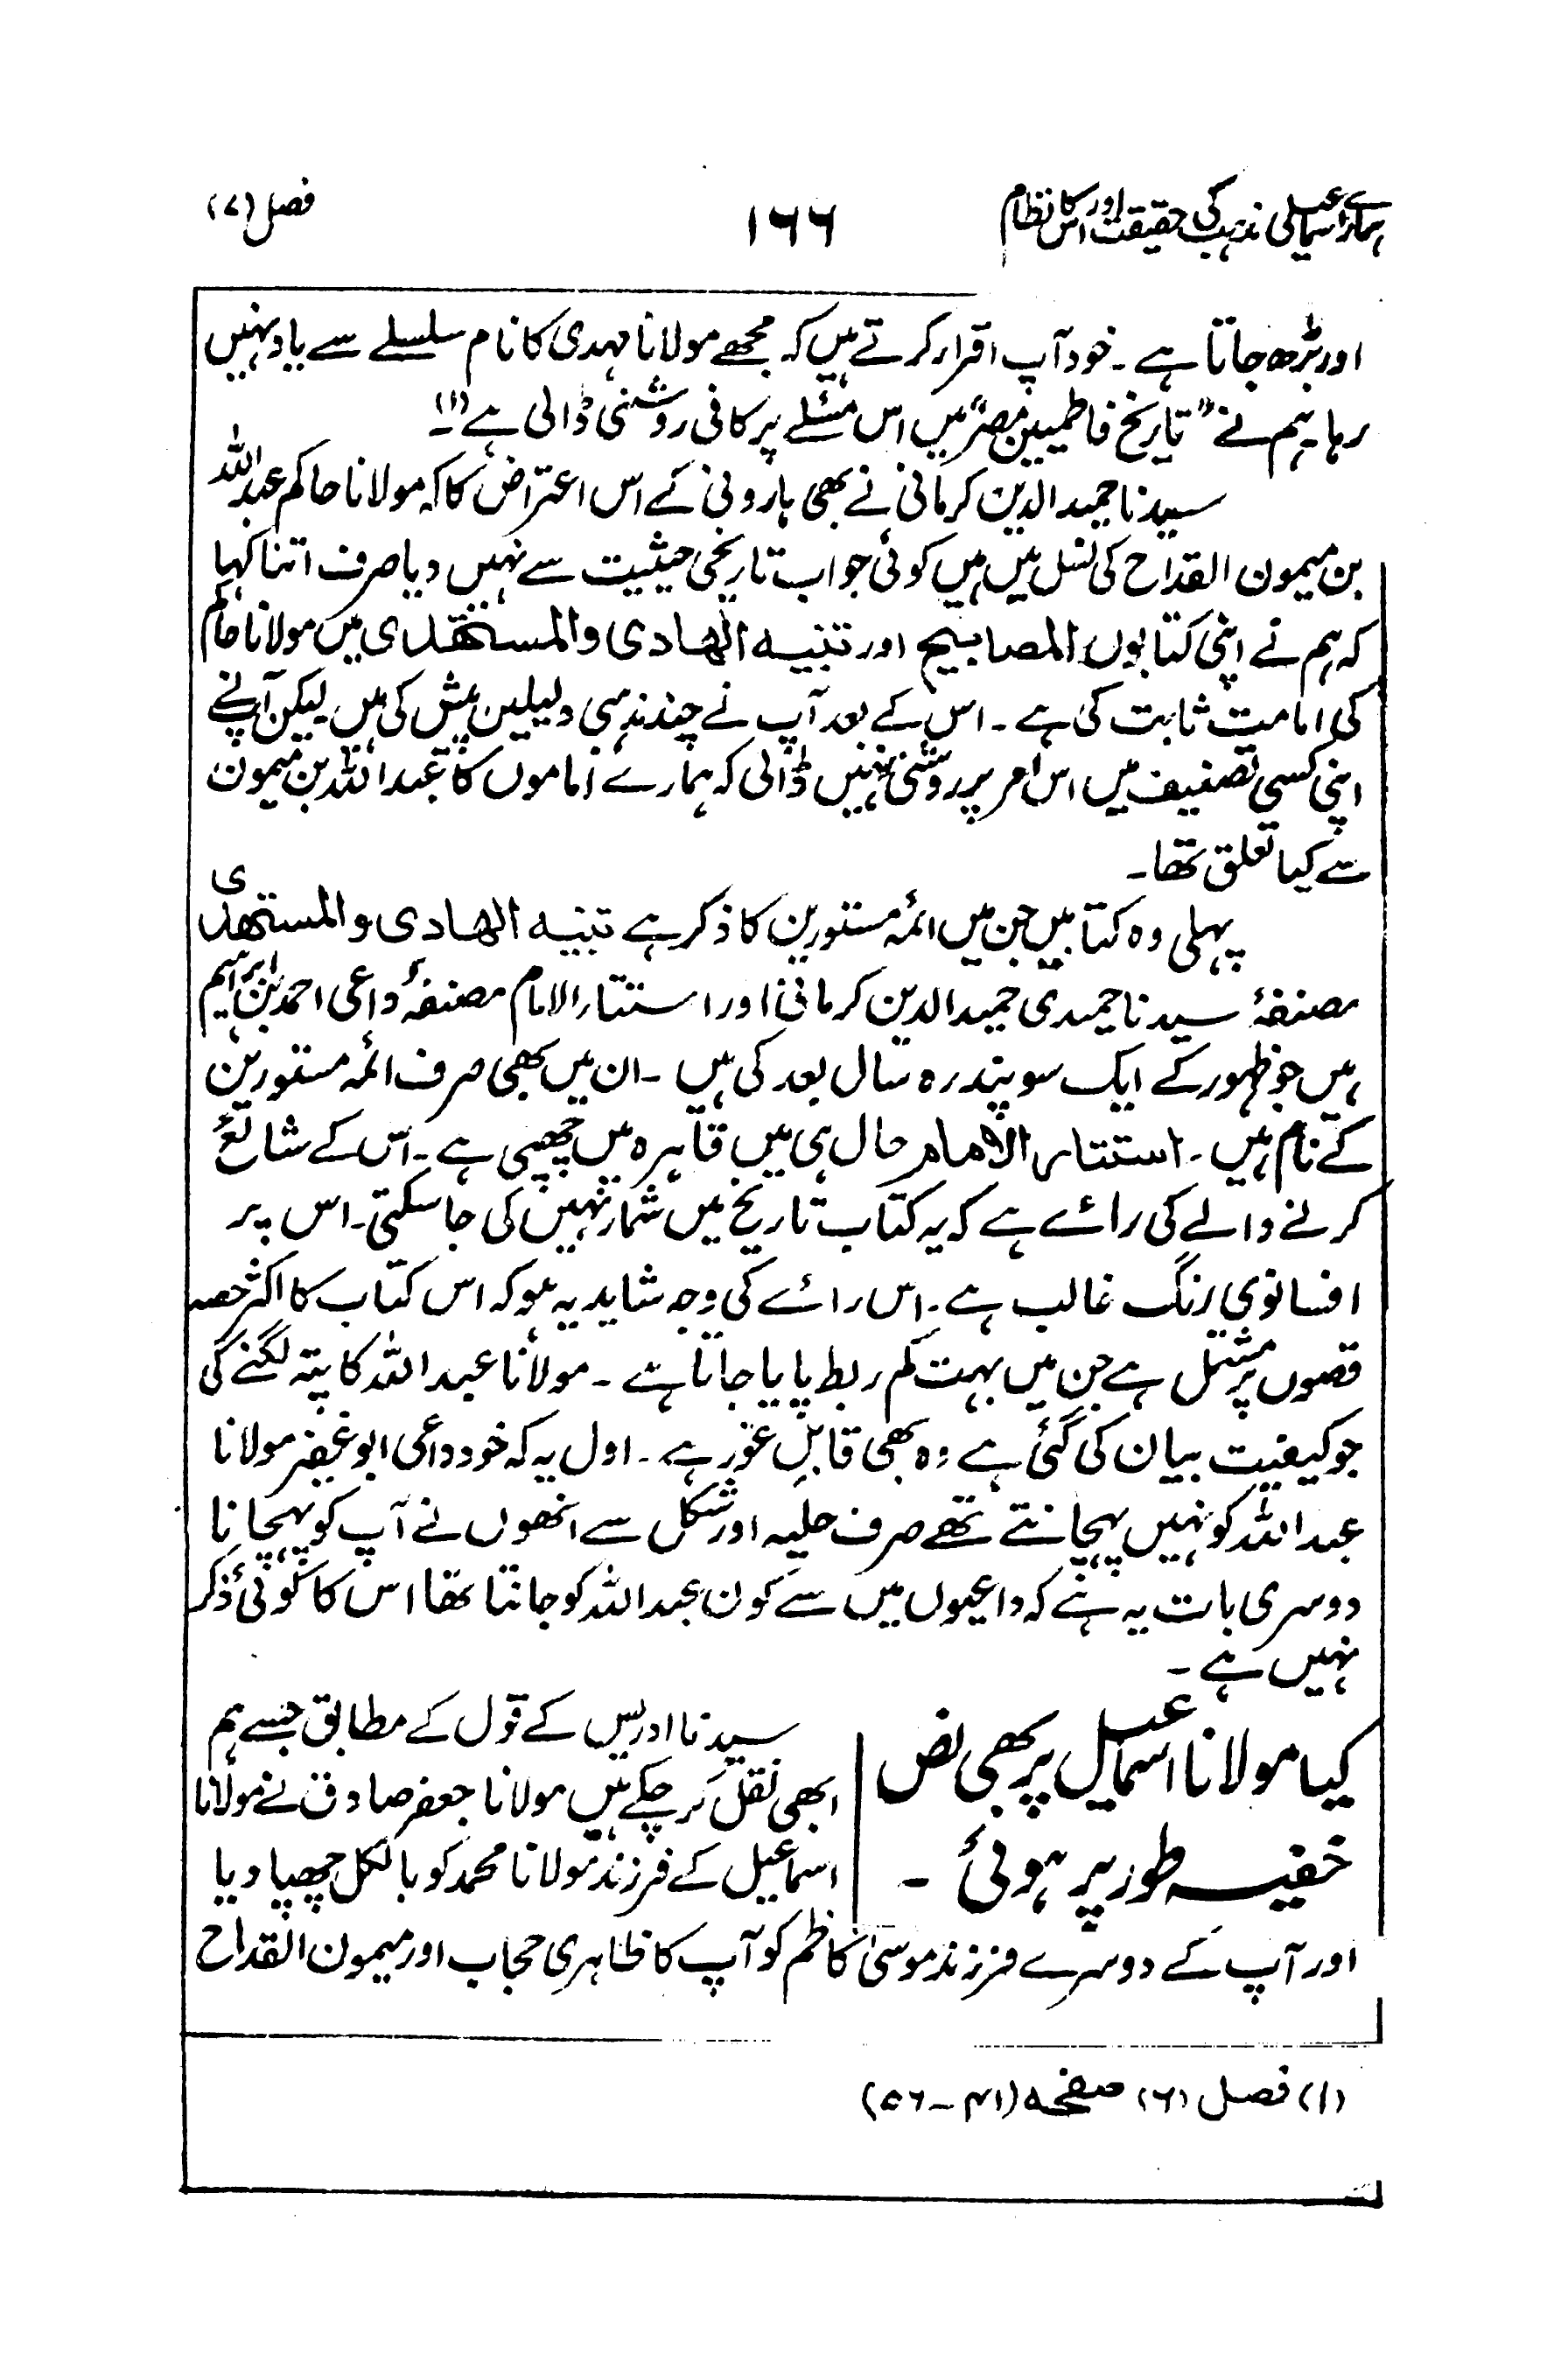 ہمارے اسماعیلی مذہب کی حقیقت اور اس کا نظام
۱۶۶
فصل (۷)
اور بڑھ جاتا ہے ۔ خود آپ اقرار کرتے ہیں کہ مجھے مولانا مہدی کا نام سلسلے سے یاد نہیں
رہا ۔ ہم نے "تاریخ فاطمیین مصر" میں اس مسئلے پر کافی روشنی ڈالی ہے (۱)۔
سیدنا حمید الدین کرمانی نے بھی ہارونی کے اس اعتراض کا کہ مولانا حاکم عبد اللہ
بن میمون القداح کی نسل میں ہیں کوئی جواب تاریخی حیثیت سے نہیں دیا صرف اتنا کہا
کہ ہم نے اپنی کتابوں المصابیح اور تنبیہ الھادی والمستھدی میں مولانا حاکم
کی امامت ثابت کی ہے ۔ اس کے بعد آپ نے چند مذہبی دلیلیں پیش کی ہیں لیکن آپ نے
اپنی کسی تصنیف میں اس امر پر روشنی نہیں ڈالی کہ ہمارے اماموں کا عبد اللہ بن میمون
سے کیا تعلق تھا ۔
پہلی وہ کتابیں جن میں ائمہ مستورین کا ذکر ہے تنبیہ الھادی والمستھدی
مصنفۂ سیدنا حمیدی حمید الدین کرمانی اور استتار الامام مصنفۂ داعی احمد بن ابراہیم
ہیں جو ظہور کے ایک سو پندرہ سال بعد کی ہیں ۔ ان میں بھی صرف ائمہ مستورین
کے نام ہیں ۔ استتار الامام حال ہی میں قاہرہ میں چھپی ہے ۔ اس کے شائع
کرنے والے کی رائے ہے کہ یہ کتاب تاریخ میں شمار نہیں کی جا سکتی ۔ اس پر
افسانوی رنگ غالب ہے ۔ اس رائے کی وجہ شاید یہ ہو کہ اس کتاب کا اکثر حصہ
قصوں پر مشتمل ہے جن میں بہت کم ربط پایا جاتا ہے ۔ مولانا عبد اللہ کا پتہ لگنے کی
جو کیفیت بیان کی گئی ہے وہ بھی قابلِ غور ہے ۔ اول یہ کہ خود داعی ابو غفیر مولانا
عبد اللہ کو نہیں پہچانتے تھے صرف حلیہ اور شکل سے انھوں نے آپ کو پہچانا
دوسری بات یہ ہے کہ داعیوں میں سے کون عبد اللہ کو جانتا تھا اس کا کوئی ذکر
نہیں ہے ۔
کیا مولانا اسماعیل پر بھی نص
خفیہ طور پر ہوئی ۔
سیدنا ادریس کے قول کے مطابق جسے ہم
ابھی نقل کر چکے ہیں مولانا جعفر صادق نے مولانا
اسماعیل کے فرزند مولانا محمد کو بالکل چھپا دیا
اور آپ کے دوسرے فرزند موسیٰ کاظم کو آپ کا ظاہری حجاب اور میمون القداح
(۱) فصل (۶) صفحہ (۴۱ - ۵۶)